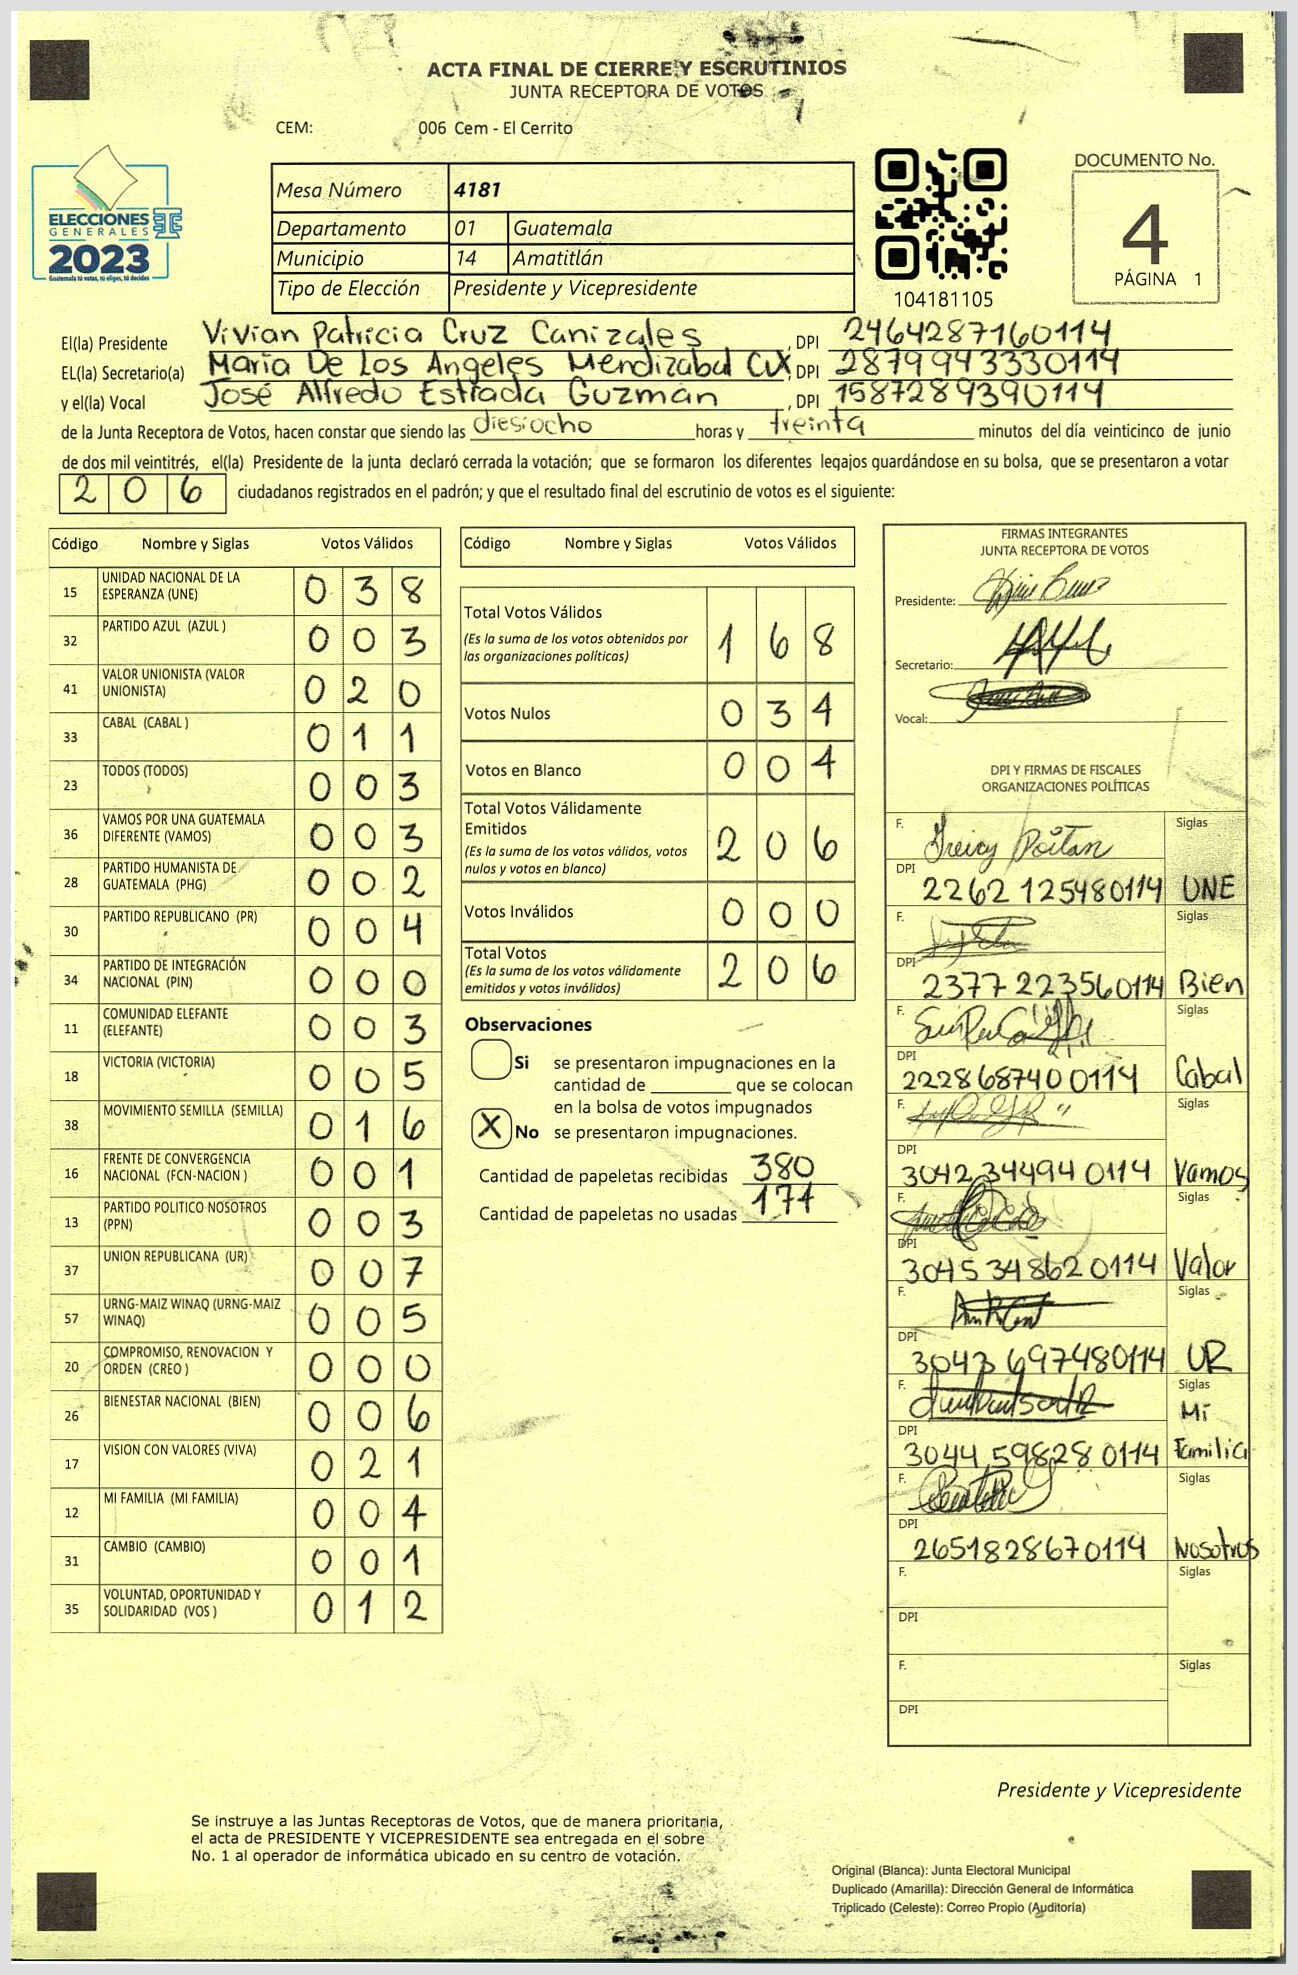 ACTA FINAL DE CIERRE Y ESCRUTINIOS
JUNTA RECEPTORA DE VOTOS
CEM: 006 Cem - El Cerrito
ELECCIONES
GENERALES
2023
Guatemala tú votas, tú eliges, tú decides
Mesa Número 4181
Departamento 01 Guatemala
Municipio 14 Amatitlán
Tipo de Elección Presidente y Vicepresidente
104181105
DOCUMENTO No.
4
PÁGINA 1
El(la) Presidente Vivian Patricia Cruz Canizales, DPI 2464287160114
EL(la) Secretario(a) María De Los Angeles Mendizabal CUX, DPI 2879943330114
y el(la) Vocal José Alfredo Estrada Guzmán, DPI 1587289390114
de la Junta Receptora de Votos, hacen constar que siendo las diesiocho horas y treinta minutos del día veinticinco de junio
de dos mil veintitrés, el(la) Presidente de la junta declaró cerrada la votación; que se formaron los diferentes legajos guardándose en su bolsa, que se presentaron a votar
206 ciudadanos registrados en el padrón; y que el resultado final del escrutinio de votos es el siguiente:
Código Nombre y Siglas Votos Válidos
15 UNIDAD NACIONAL DE LA ESPERANZA (UNE) 0 3 8
32 PARTIDO AZUL (AZUL ) 0 0 3
41 VALOR UNIONISTA (VALOR UNIONISTA) 0 2 0
33 CABAL (CABAL ) 0 1 1
23 TODOS (TODOS) 0 0 3
36 VAMOS POR UNA GUATEMALA DIFERENTE (VAMOS) 0 0 3
28 PARTIDO HUMANISTA DE GUATEMALA (PHG) 0 0 2
30 PARTIDO REPUBLICANO (PR) 0 0 4
34 PARTIDO DE INTEGRACIÓN NACIONAL (PIN) 0 0 0
11 COMUNIDAD ELEFANTE (ELEFANTE) 0 0 3
18 VICTORIA (VICTORIA) 0 0 5
38 MOVIMIENTO SEMILLA (SEMILLA) 0 1 6
16 FRENTE DE CONVERGENCIA NACIONAL (FCN-NACION ) 0 0 1
13 PARTIDO POLITICO NOSOTROS (PPN) 0 0 3
37 UNION REPUBLICANA (UR) 0 0 7
57 URNG-MAIZ WINAQ (URNG-MAIZ WINAQ) 0 0 5
20 COMPROMISO, RENOVACION Y ORDEN (CREO ) 0 0 0
26 BIENESTAR NACIONAL (BIEN) 0 0 6
17 VISION CON VALORES (VIVA) 0 2 1
12 MI FAMILIA (MI FAMILIA) 0 0 4
31 CAMBIO (CAMBIO) 0 0 1
35 VOLUNTAD, OPORTUNIDAD Y SOLIDARIDAD (VOS ) 0 1 2
Código Nombre y Siglas Votos Válidos
Total Votos Válidos 1 6 8
(Es la suma de los votos obtenidos por
las organizaciones políticas)
Votos Nulos 0 3 4
Votos en Blanco 0 0 4
Total Votos Válidamente
Emitidos 2 0 6
(Es la suma de los votos válidos, votos
nulos y votos en blanco)
Votos Inválidos 0 0 0
Total Votos 2 0 6
(Es la suma de los votos válidamente
emitidos y votos inválidos)
Observaciones
Si se presentaron impugnaciones en la
cantidad de ________ que se colocan
en la bolsa de votos impugnados
X No se presentaron impugnaciones.
Cantidad de papeletas recibidas 380
Cantidad de papeletas no usadas 174
FIRMAS INTEGRANTES
JUNTA RECEPTORA DE VOTOS
Presidente:
Secretario:
Vocal:
DPI Y FIRMAS DE FISCALES
ORGANIZACIONES POLÍTICAS
F. Siglas
DPI 2262 125480114 UNE
F. Siglas
DPI 2377 223560114 Bien
F. Siglas
DPI 2228687400114 Cabal
F. Siglas
DPI 3042 344940114 Vamos
F. Siglas
DPI 3045 348620114 Valor
F. Siglas
DPI 3043 697480114 UR
F. Siglas
DPI 3044 598280114 Mi Familia
F. Siglas
DPI 2651828670114 Nosotros
F. Siglas
DPI
F. Siglas
DPI
Presidente y Vicepresidente
Se instruye a las Juntas Receptoras de Votos, que de manera prioritaria,
el acta de PRESIDENTE Y VICEPRESIDENTE sea entregada en el sobre
No. 1 al operador de informática ubicado en su centro de votación.
Original (Blanca): Junta Electoral Municipal
Duplicado (Amarilla): Dirección General de Informática
Triplicado (Celeste): Correo Propio (Auditoría)